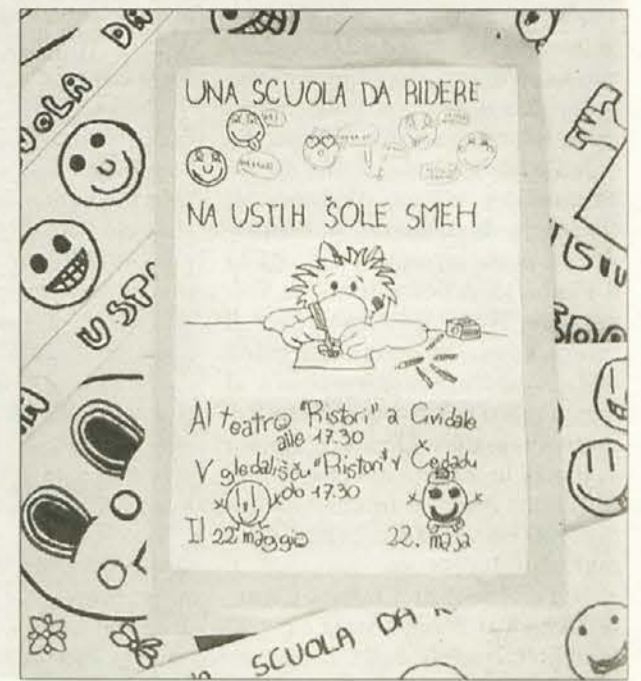 UNA SCUOLA DA RIDERE
NA USTIH ŠOLE SMEH
Al teatro "Ristori" a Cividale
alle 17.30
V gledališču "Ristori" v Čedadu
ob 17.30
Il 22 maggio
22. maja
SCUOLA DA